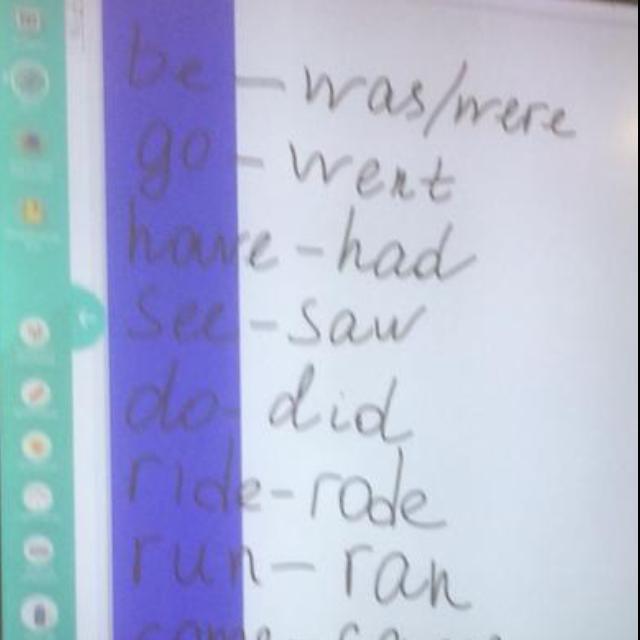 be - was/were
go - went
have - had
see - saw
do - did
ride - rode
run - ran
come - came